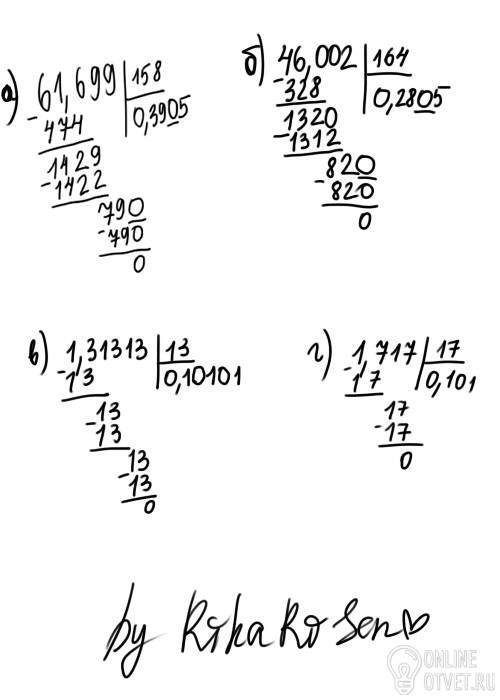 а) 61,699 | 158
- 474 | 0,3905
1429
- 1422
790
- 790
0
б) 46,002 | 164
- 328 | 0,2805
1320
- 1312
820
- 820
0
в) 1,31313 | 13
- 13 | 0,10101
13
- 13
13
- 13
0
г) 1,717 | 17
- 17 | 0,101
17
- 17
0
by Rika Ri Sen
ONLINE
OTVET.RU